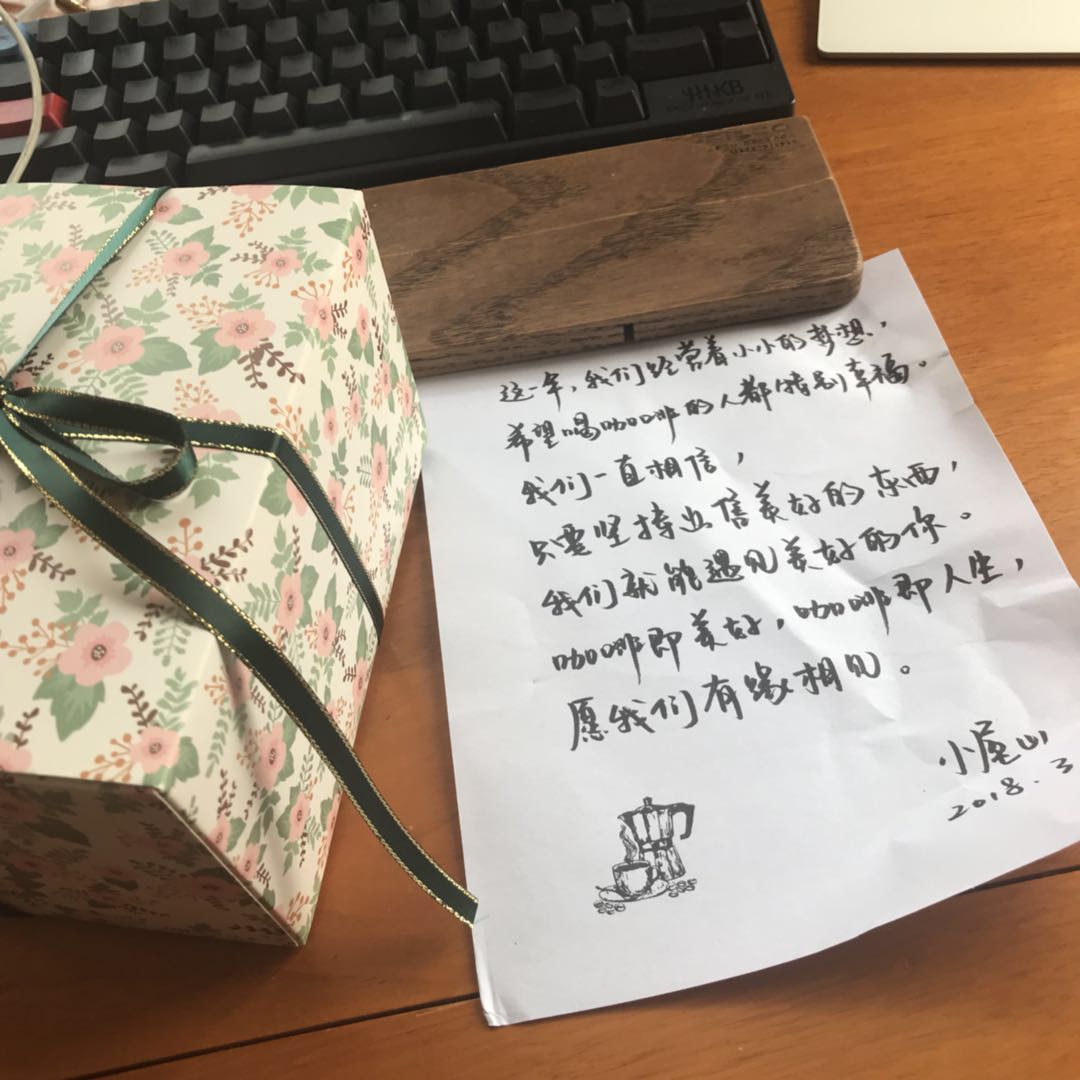 HHKB
这一年，我们经营着小小的梦想，
希望喝咖啡的人都特别幸福。
我们一直相信，
只要坚持出售美好的东西，
我们就能遇见美好的你。
咖啡即美好，咖啡即人生，
愿我们有缘相见。
小尾山
2018.3